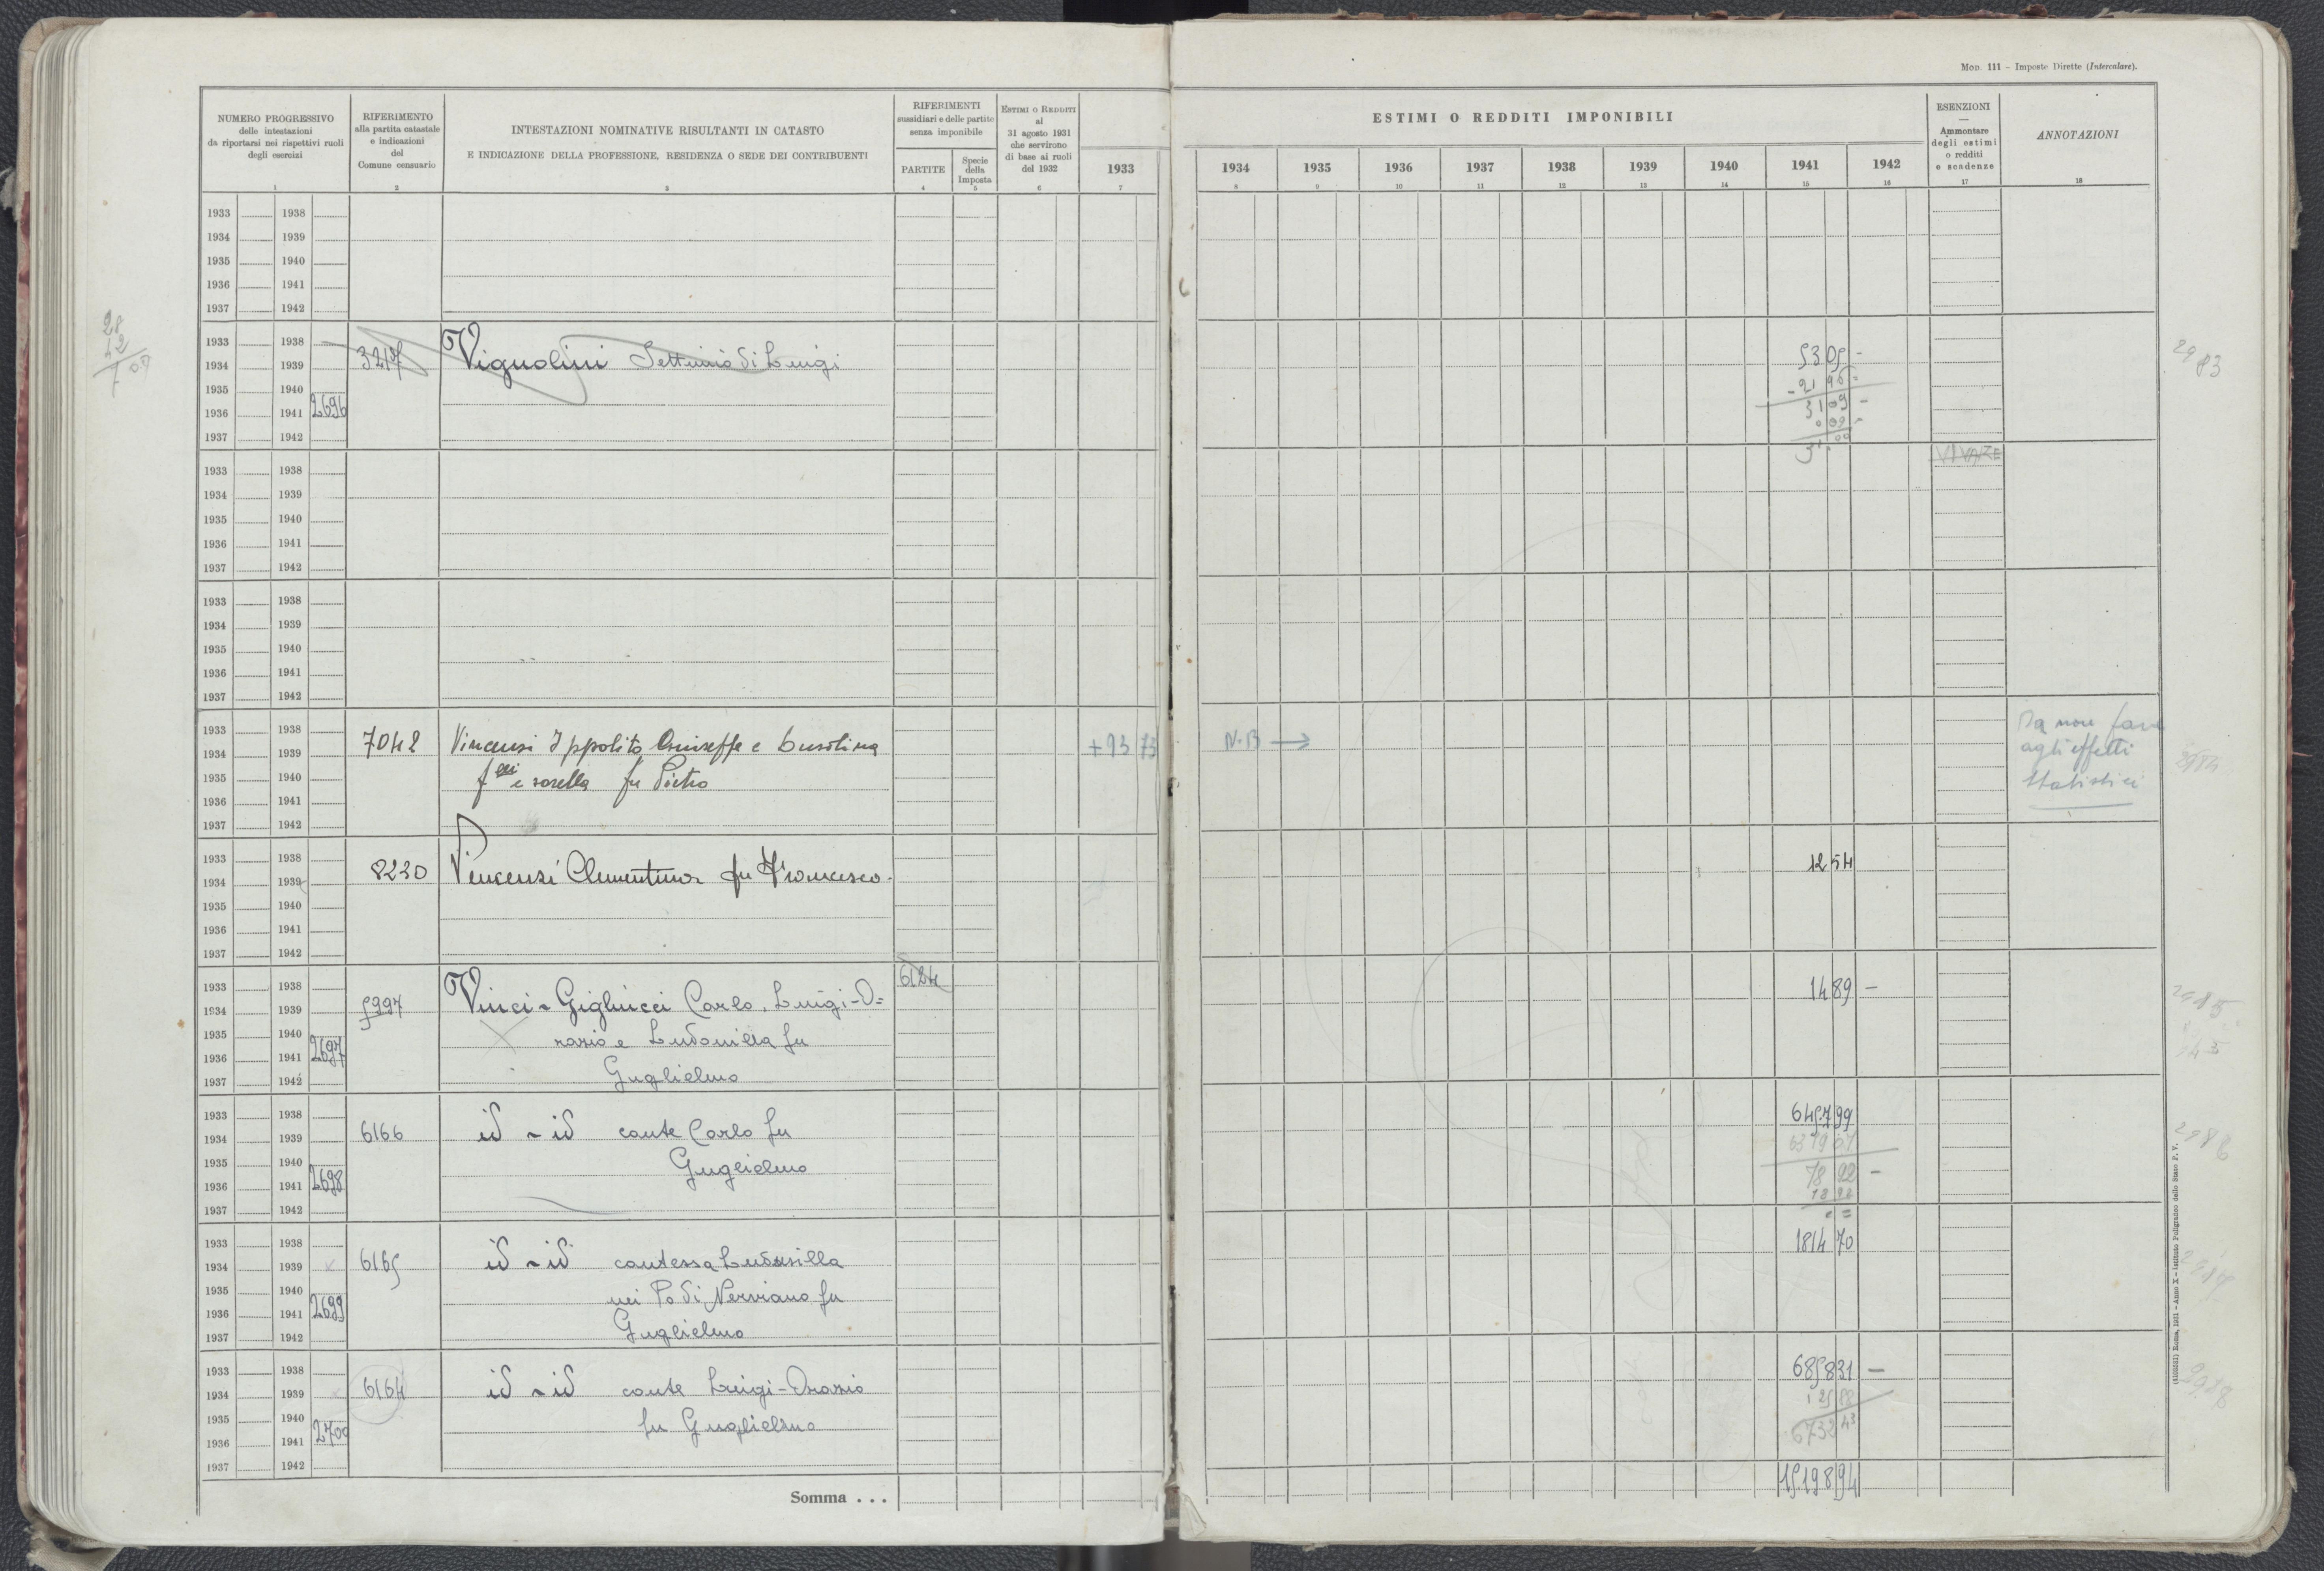 Mod. 111 - Imposte Dirette (Intercalare).
NUMERO PROGRESSIVO
delle intestazioni
da riportarsi nei rispettivi ruoli
degli esercizi
1
RIFERIMENTO
alla partita catastale
e indicazioni
del
Comune censuario
2
INTESTAZIONI NOMINATIVE RISULTANTI IN CATASTO
E INDICAZIONE DELLA PROFESSIONE, RESIDENZA O SEDE DEI CONTRIBUENTI
3
RIFERIMENTI
sussidiari e delle partite
senza imponibile
PARTITE
4
Specie
della
Imposta
5
Estimi o Redditi
al
31 agosto 1931
che servirono
di base ai ruoli
del 1932
6
ESTIMI O REDDITI IMPONIBILI
1933
7
1934
8
1935
9
1936
10
1937
11
1938
12
1939
13
1940
14
1941
15
1942
16
ESENZIONI
—
Ammontare
degli estimi
o redditi
e scadenze
17
ANNOTAZIONI
18
1933 1938
1934 1939
1935 1940
1936 1941
1937 1942
28
42
1933 1938
1934 1939 3217 Vignolini Settimio di Luigi 5305 - 2983
1935 1940
1936 1941 2696 3109 -
1937 1942
1933 1938
1934 1939
1935 1940
1936 1941
1937 1942
1933 1938
1934 1939
1935 1940
1936 1941
1937 1942
1933 1938 7042 Vincenzi Ippolito Giuseppe e
1934 1939 +93 73 N.B →
1935 1940 f.lli e sorella fu Pietro
1936 1941
1937 1942
Da non fare
agli effetti
statistici
1933 1938
1934 1939 8230 Vincenzi Clementina fu Francesco 12 54
1935 1940
1936 1941
1937 1942
1933 1938 6124
1934 1939 5997 Vinci - Gigliucci Carlo, Luigi-O= 1489 - 2985
1935 1940 razio e Ludomilla fu
1936 1941 2697
1937 1942 Guglielmo
1933 1938 6457 99
1934 1939 6166 id - id conte Carlo fu 2986
1935 1940 Guglielmo
1936 1941 2698 78 92 -
1937 1942
1933 1938 1814 70
1934 1939 6165 id - id contessa Ludomilla
1935 1940 nei Po di Nerviano fu
1936 1941 2699
1937 1942 Guglielmo
1933 1938 6858 31 -
1934 1939 6164 id - id conte Luigi-Orazio
1935 1940 fu Guglielmo
1936 1941 2700 6732 43
1937 1942
Somma . . . 15198 94
(4103551) Roma, 1931 - Anno X - Istituto Poligrafico dello Stato P. V.